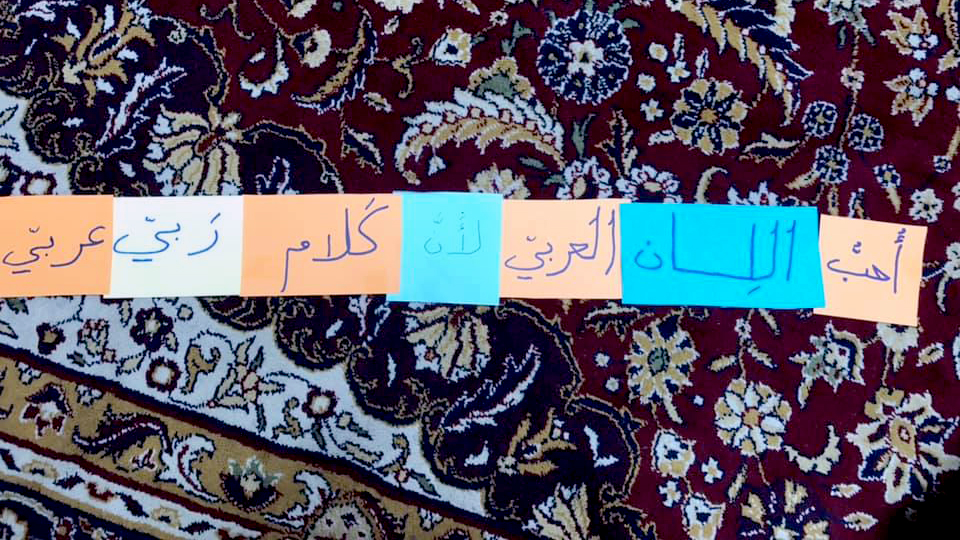 أُحبُّ اللِسان العربيّ لأنّ كَلام رَبيّ عربيّ